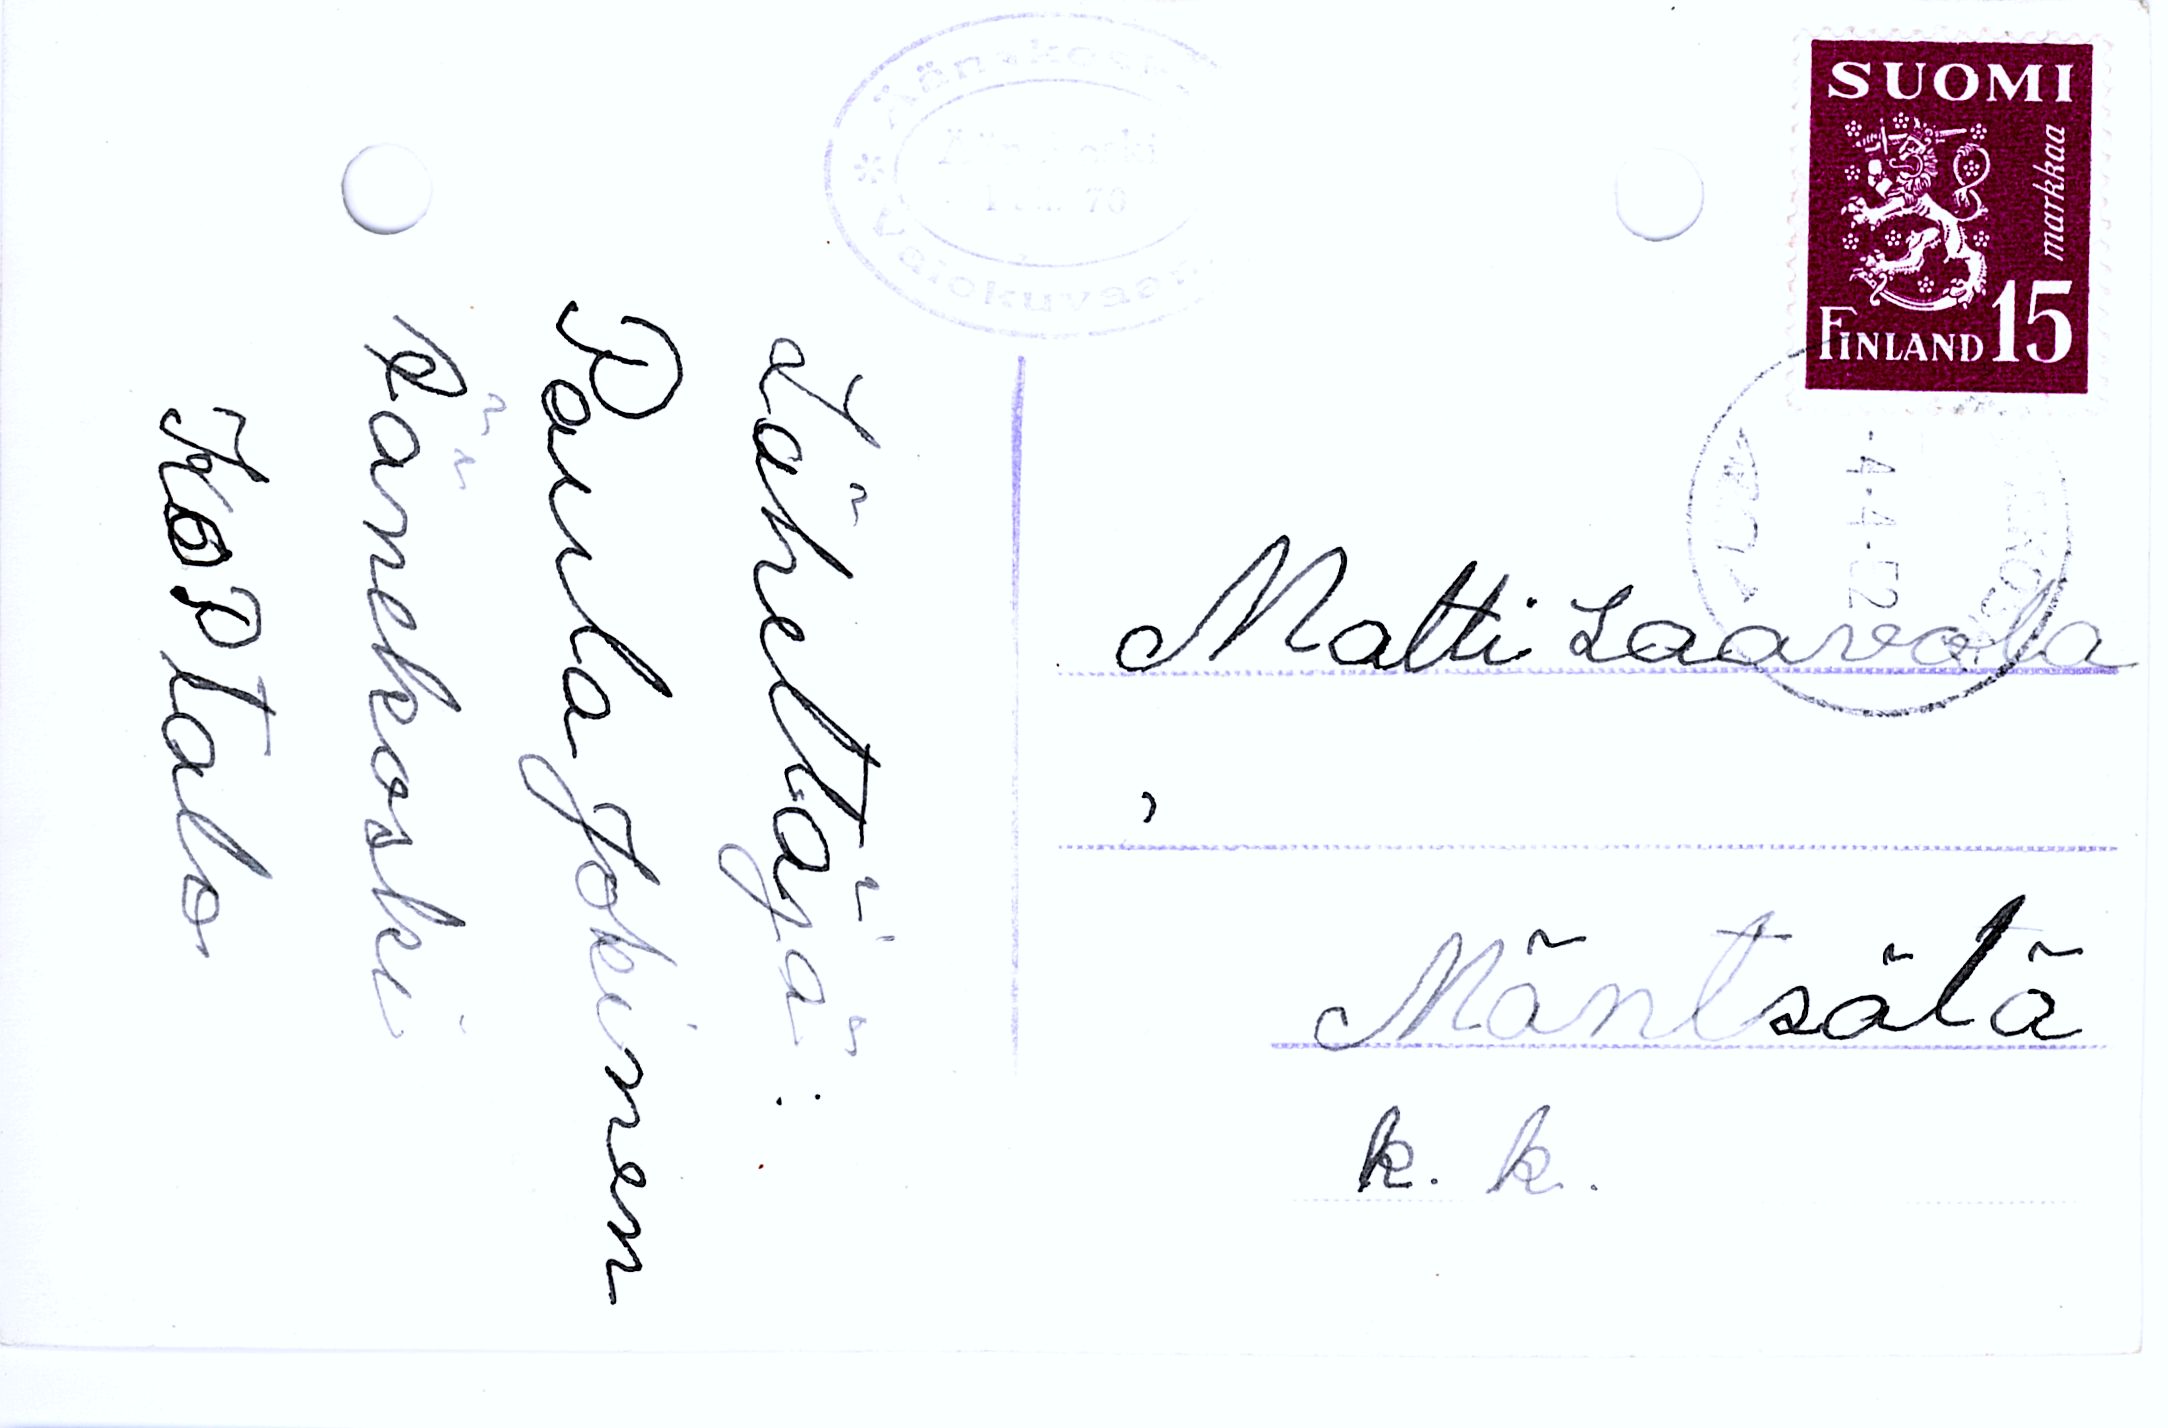 Äänekoski
Valokuvaamo
70
SUOMI
markkaa
FINLAND 15
-4-4-52
Lähettäjä:
Paula Jokinen
Äänekoski
KOP Talo
Matti Laavola
Mäntsälä
k. k.